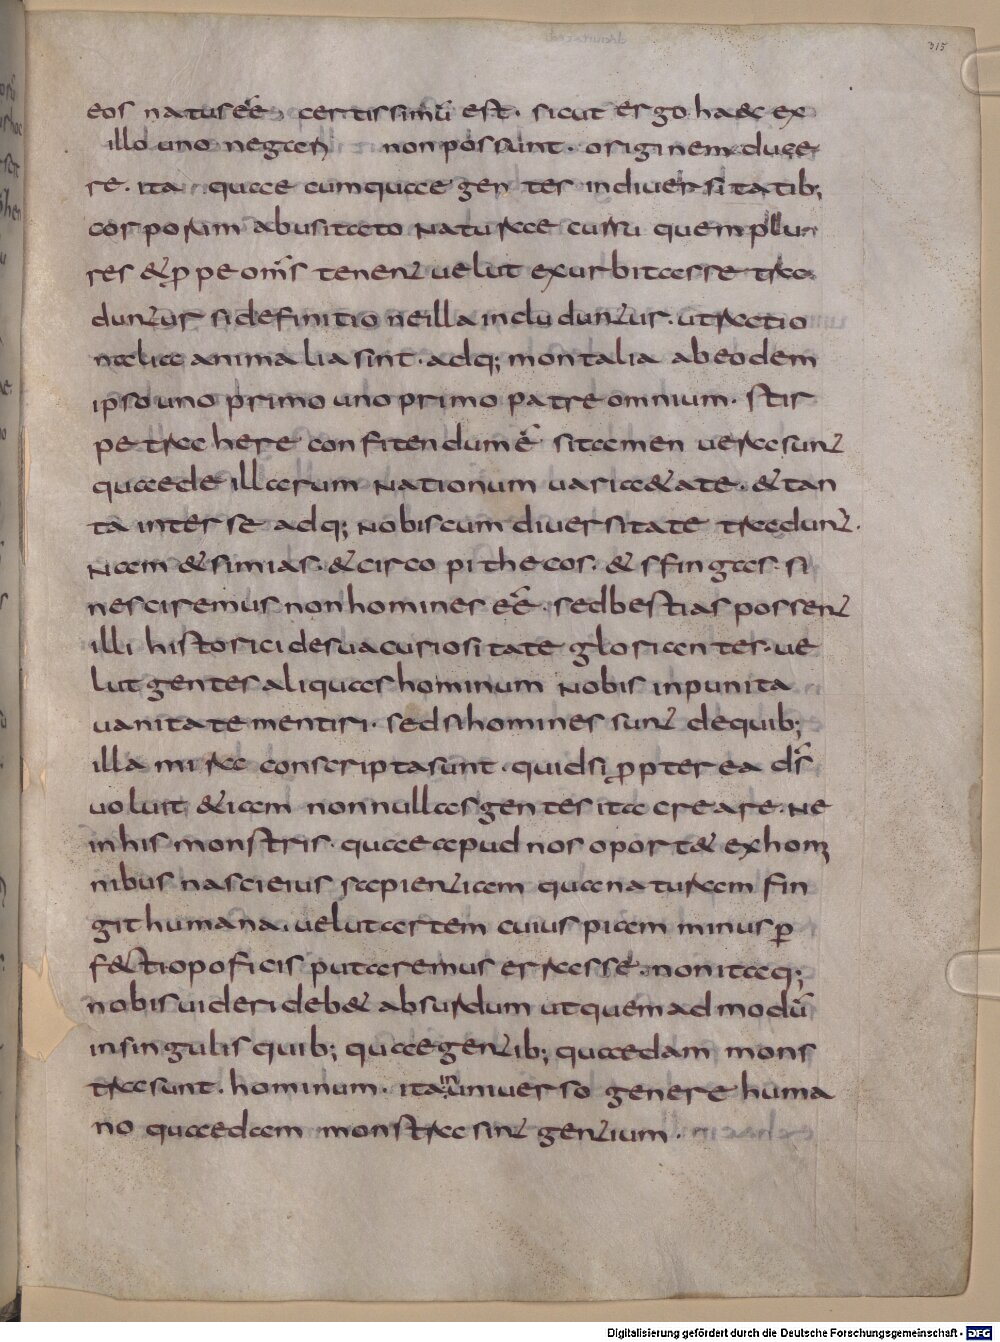 315
eos natus eē certissimū est. sicut ergo haec ex
illo uno negcen non possunt. originem duce
re. ita quae cumquae gen ter in diuersitatib;
corporum abusitato naturae cursu quem plu
res & ꝓpe om̄s tenent uelut exurbitasse tra
duntur si definitio ne illa includuntur. ut ratio
nalia animalia sint. adq; montalia ab eodem
ipso uno primo uno primo patre omnium. stir
pe trahere confitendum ē si tamen uera sunt
quae de illarum nationum uariaetate. & tan
ta inter se adq; nobiscum diuersitate traduntur.
Nam & simias. & circopithecos. & sfingas. si
nesciremus non homines eē. sed bestias possent
illi historici de sua curiositate gloriantes. ue
lut gentes aliquas hominum nobis inpunita
uanitate mentiri. sed si homines sunt de quib;
illa mira conscripta sunt. quid si ꝓpterea d̄s
uoluit etiam nonnullas gentes ita creare. Ne
in his monstris. quae apud nos oportet ex homi
nibus nasci eius sapientiam qua naturam fin
git humana. uelut artem cuiuspiam minus ꝑ
fecti opoficis putaremus errasse. non itaq;
nobis uideri debet absurdum ut quem ad modū
in singulis quib; quae gentib; quaedam mons
tra sunt. hominum. ita in uniuerso genere huma
no quaedam monstra sint gentium.
Digitalisierung gefördert durch die Deutsche Forschungsgemeinschaft - DFG